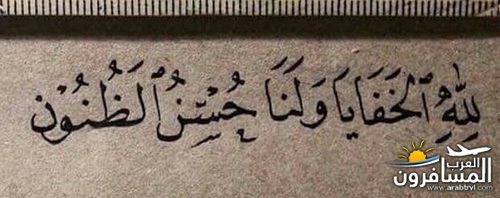 لِلّٰهِ ٱلْخَفَايَا وَلَنَا حُسْنُ ٱلظُّنُوْنِ
العرب
المسافرون
www.arabtrvl.com